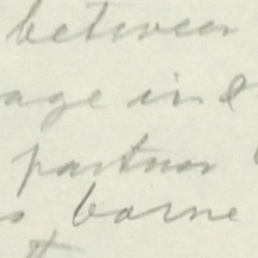 between
age in
partner
borne